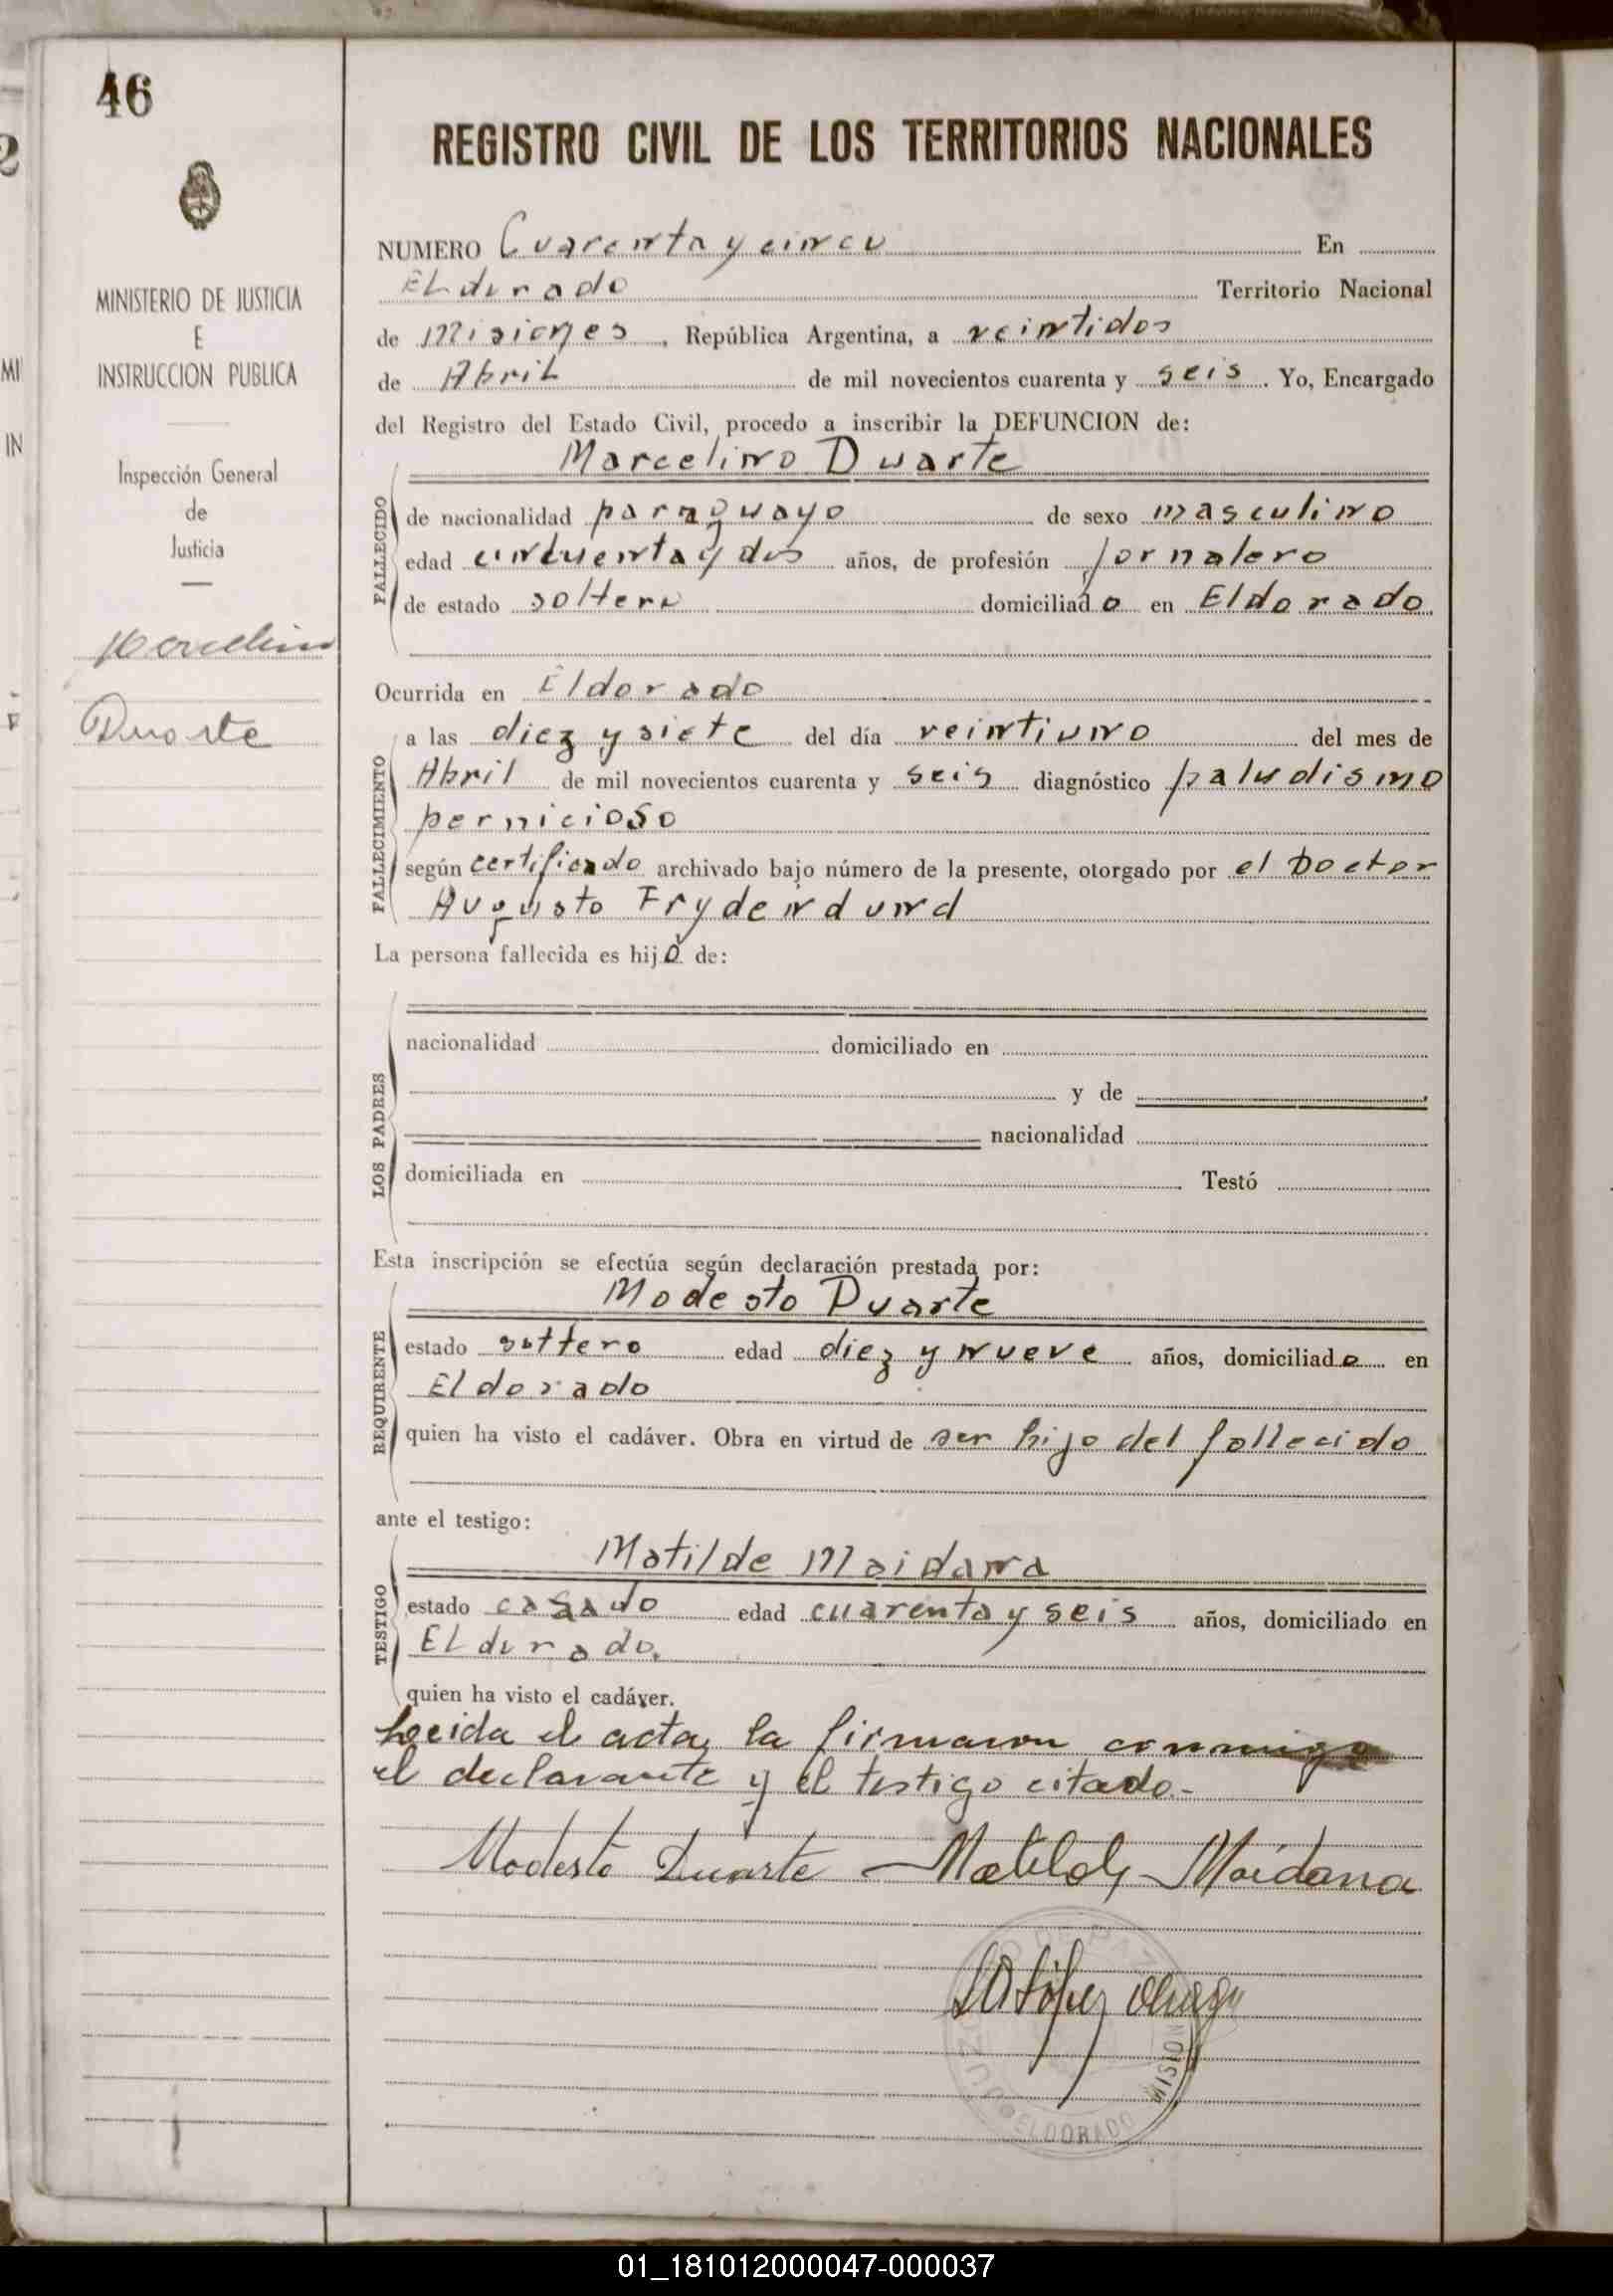 46
MINISTERIO DE JUSTICIA
E
INSTRUCCION PUBLICA
Inspección General
de
Justicia
Marcelino
Duarte
REGISTRO CIVIL DE LOS TERRITORIOS NACIONALES
NUMERO Cuarenta y cinco En
ELdorado Territorio Nacional
de Misiones, República Argentina, a veintidos
de Abril de mil novecientos cuarenta y seis. Yo, Encargado
del Registro del Estado Civil, procedo a inscribir la DEFUNCION de:
Marcelino Duarte
FALLECIDO
de nacionalidad paraguayo de sexo masculino
edad cincuenta y dos años, de profesión Jornalero
de estado soltero domiciliado en Eldorado
Ocurrida en Eldorado
FALLECIMIENTO
a las diez y siete del día veintiuno del mes de
Abril de mil novecientos cuarenta y seis diagnóstico paludismo
pernicioso
según certificado archivado bajo número de la presente, otorgado por el Doctor
Augusto Frydendund
La persona fallecida es hijo de:
LOS PADRES
nacionalidad domiciliado en
y de
nacionalidad
domiciliada en Testó
Esta inscripción se efectúa según declaración prestada por:
Modesto Duarte
REQUIRENTE
estado soltero edad diez y nueve años, domiciliado en
Eldorado
quien ha visto el cadáver. Obra en virtud de ser hijo del fallecido
ante el testigo:
Matilde Maidana
TESTIGO
estado casado edad cuarenta y seis años, domiciliado en
ELdorado.
quien ha visto el cadáver.
Leeida el acta, la firmaron conmigo
el declarante y el testigo citado.-
Modesto Duarte Matilde Maidana
ELDORADO
01_181012000047-000037